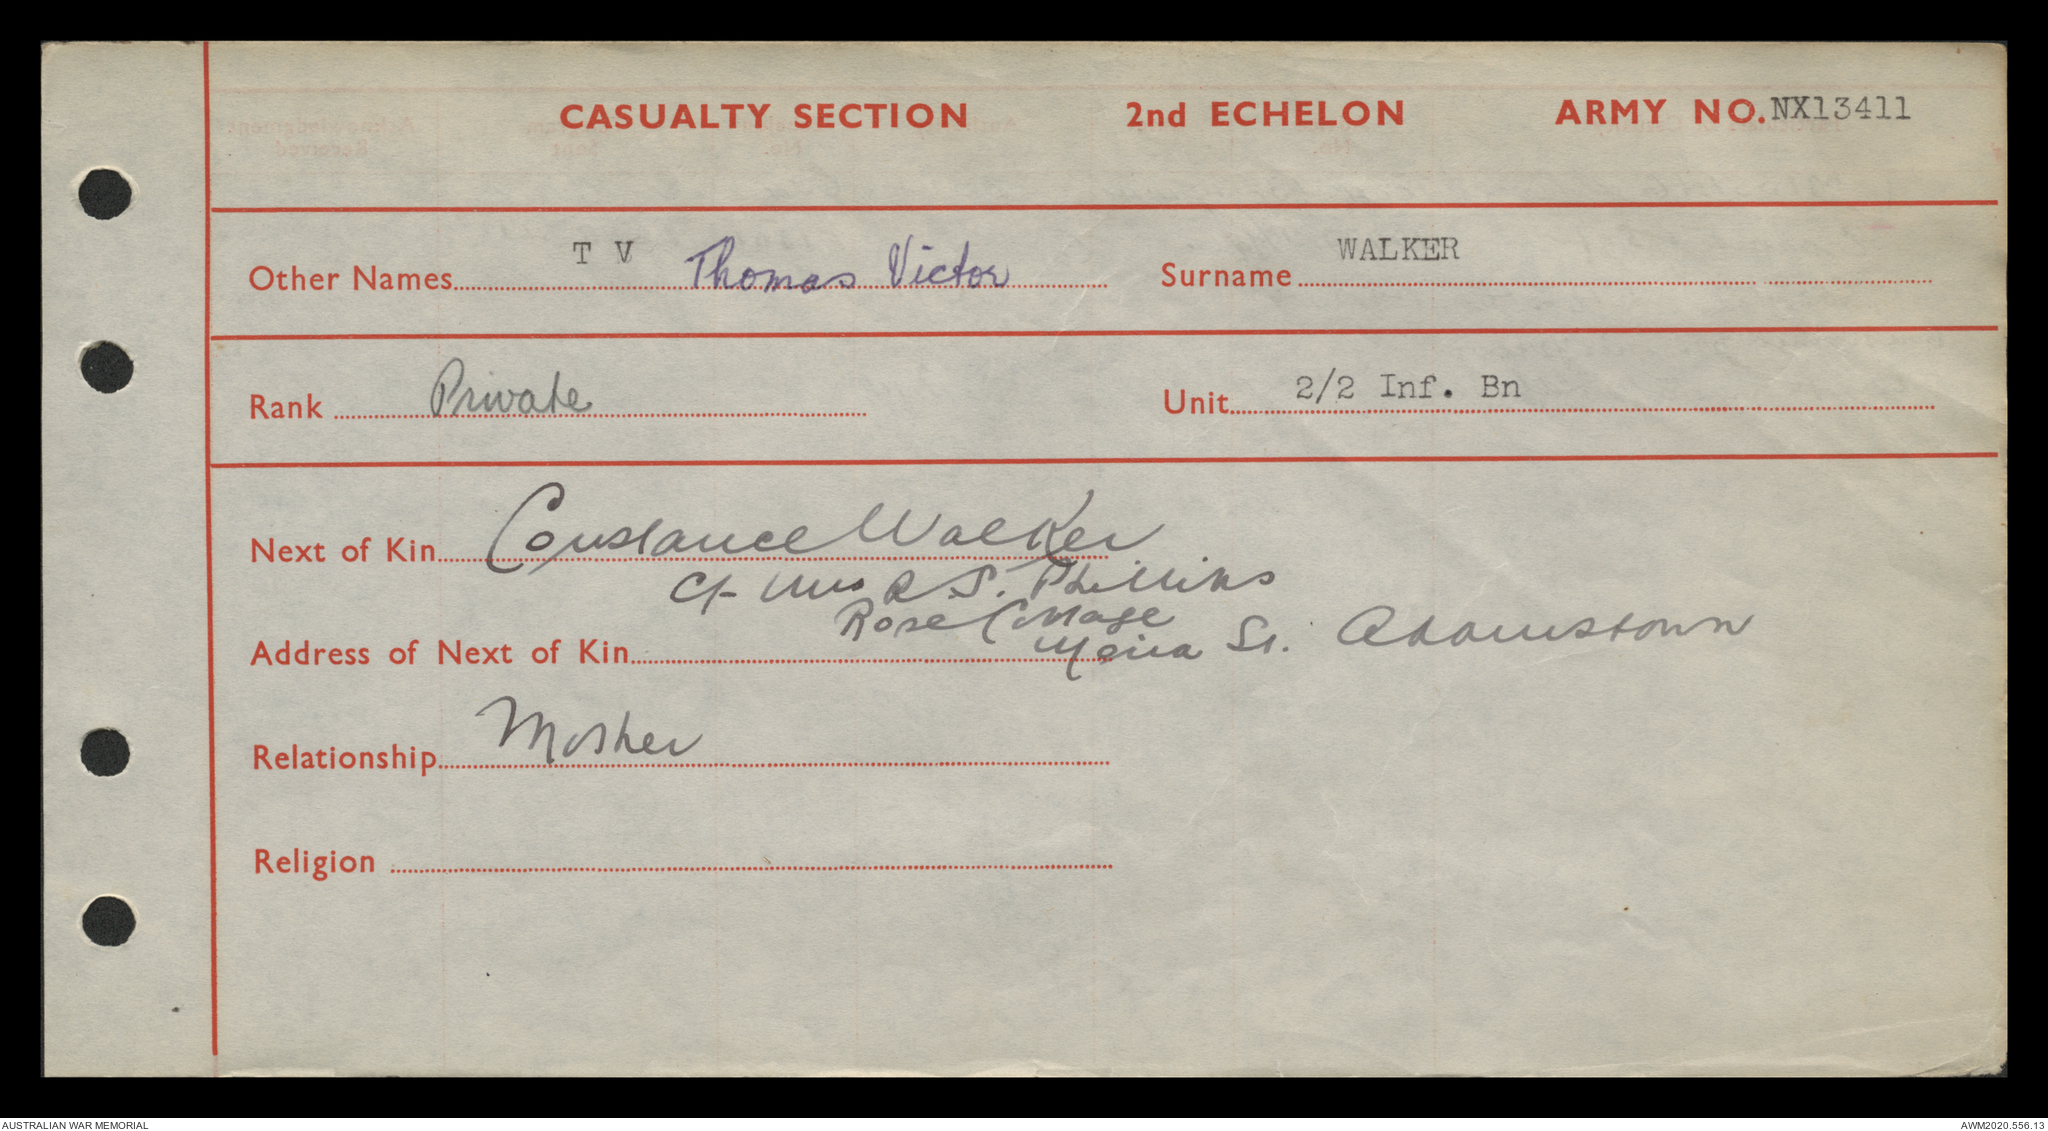 CASUALTY SECTION 2nd ECHELON ARMY NO. NX13411
Other Names T V Thomas Victor Surname WALKER
Rank Private Unit 2/2 Inf. Bn
Next of Kin Constance Walker
C/- Mrs R S. Phillips
Rose Cottage
Address of Next of Kin Moira St. Adamstown
Relationship Mother
Religion
AUSTRALIAN WAR MEMORIAL AWM2020.556.13